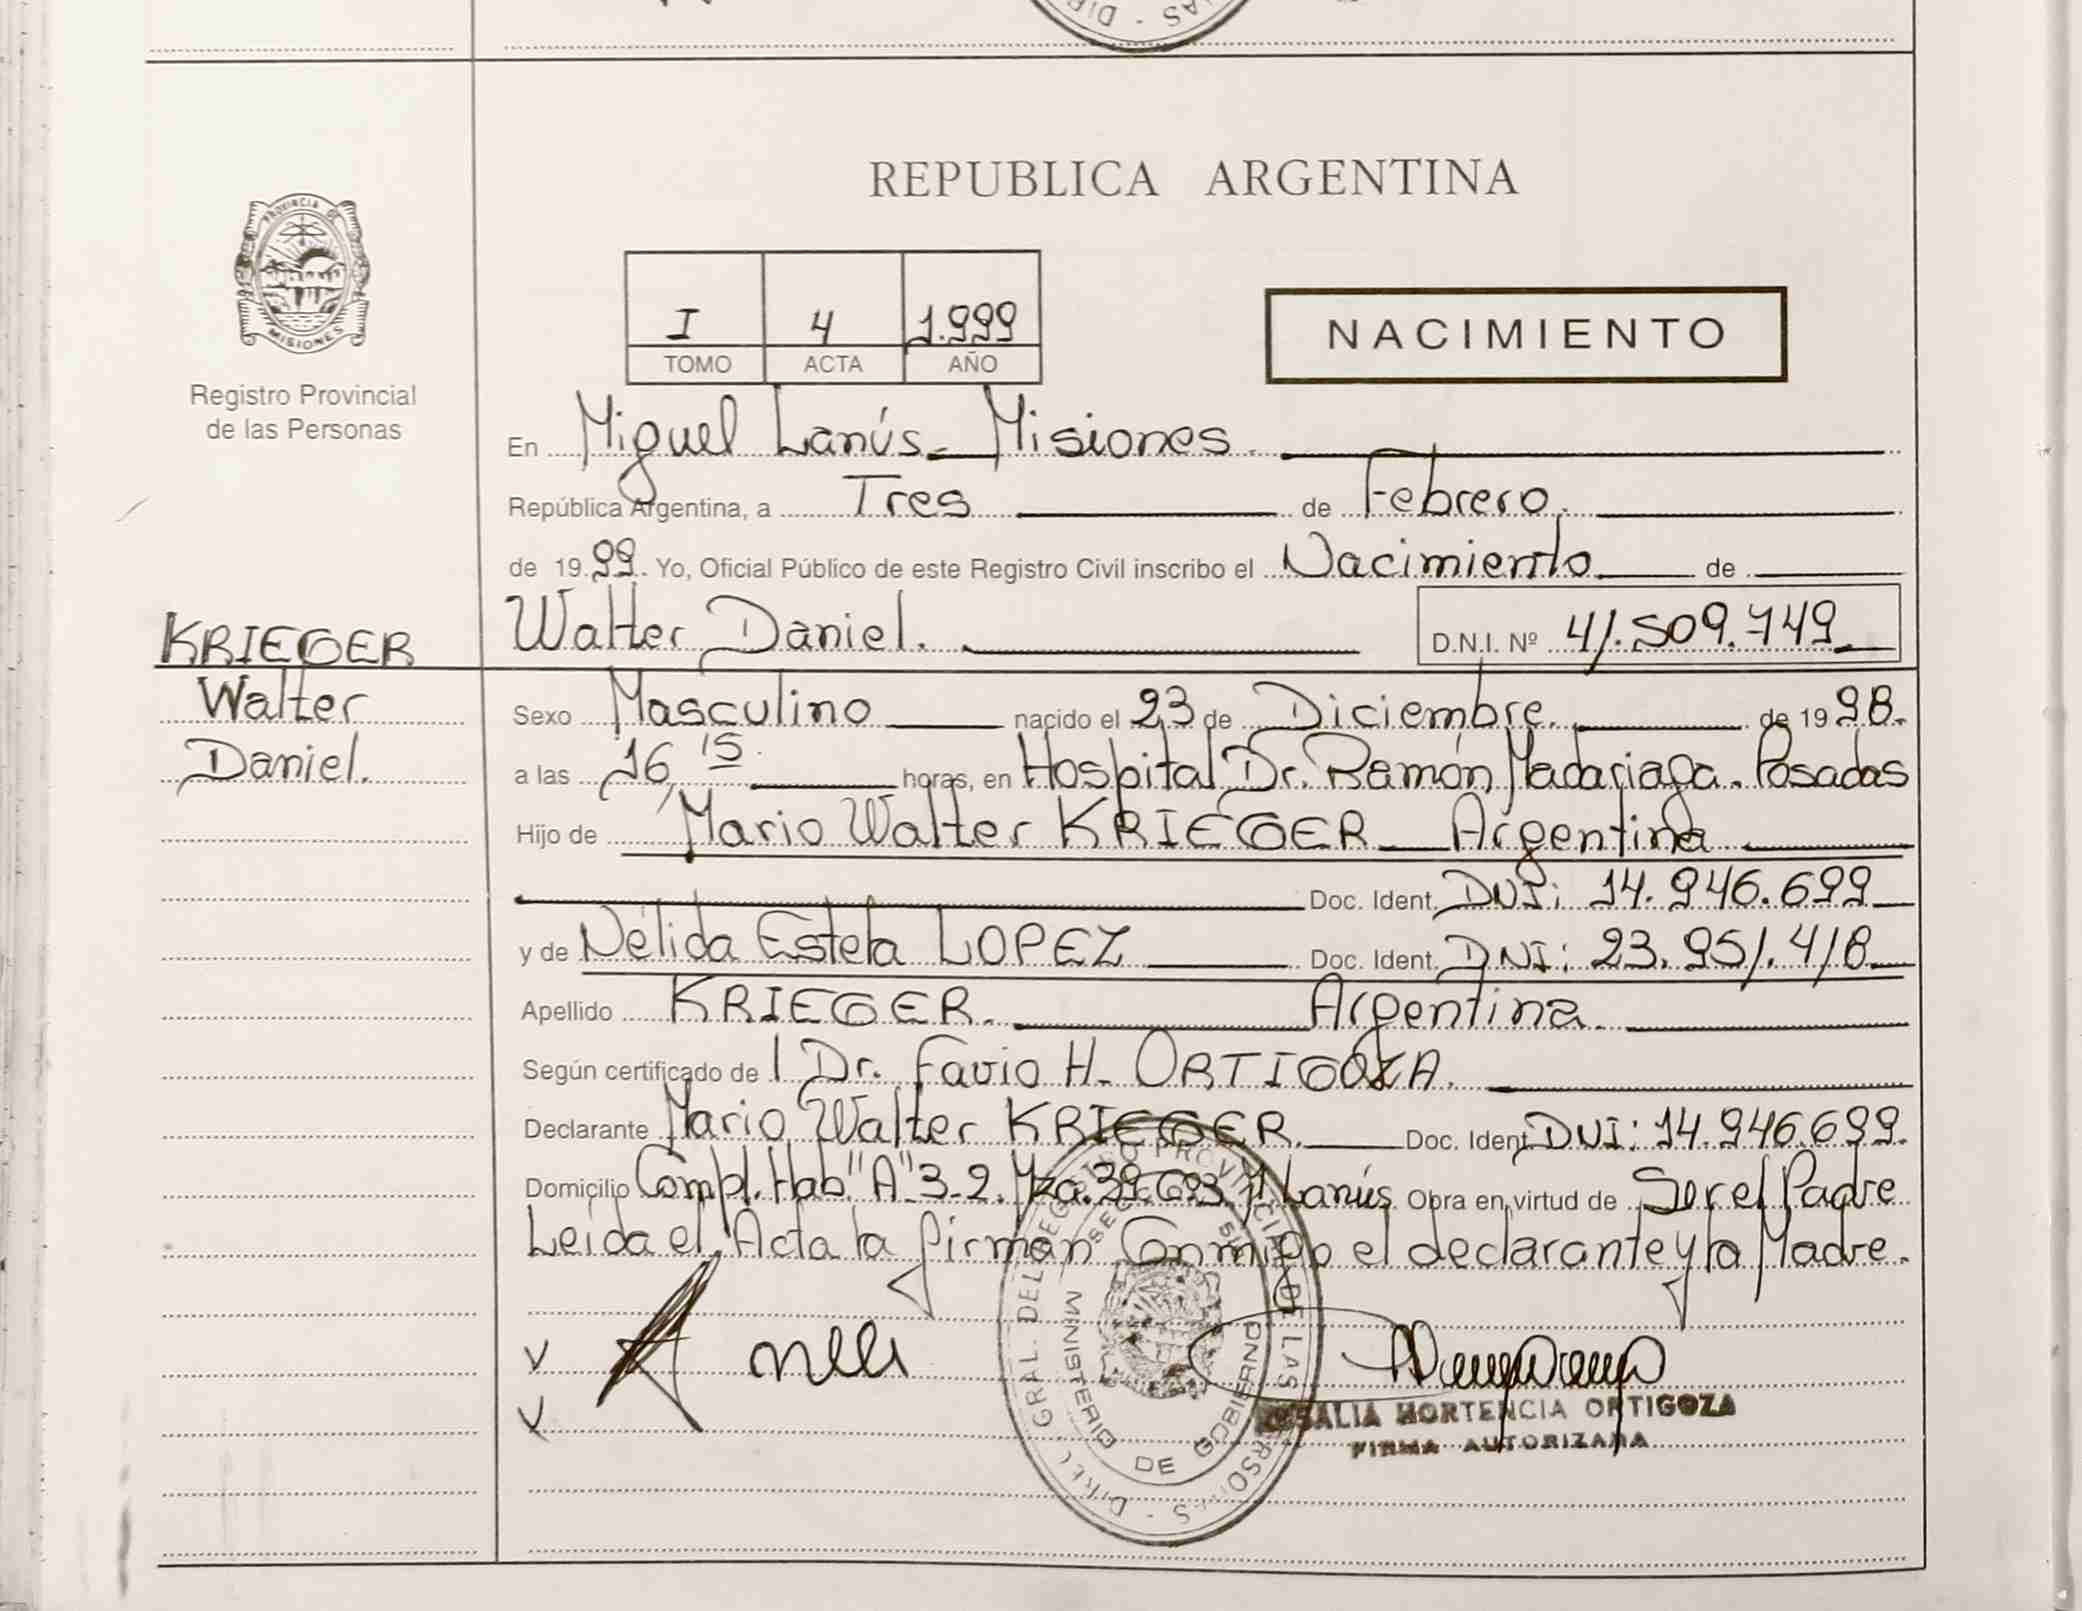 REPUBLICA ARGENTINA
PROVINCIA DE
MISIONES
Registro Provincial
de las Personas
I 4 1.999
TOMO ACTA AÑO
NACIMIENTO
En Miguel Lanús - Misiones.
República Argentina, a Tres de Febrero.
de 1999. Yo, Oficial Público de este Registro Civil inscribo el Nacimiento de
KRIEGER
Walter Daniel. D.N.I. Nº 41.509.749
Walter
Daniel.
Sexo Masculino nacido el 23 de Diciembre. de 1998.
a las 16,15 horas, en Hospital Dr. Ramón Madariaga. Posadas
Hijo de Mario Walter KRIEGER Argentina
Doc. Ident. DNI: 14.946.699
y de Nélida Estela LOPEZ Doc. Ident. DNI: 23.951.418
Apellido KRIEGER. Argentina.
Según certificado de l Dr. Favio H. ORTIGOZA.
Declarante Mario Walter KRIEGER. Doc. Ident. DNI: 14.946.699.
Domicilio Compl. Hab. "A" 3-2. Mza. 39. C. 3. M. Lanús Obra en virtud de Ser el Padre
Leída el Acta la firman Conmigo el declarante y la Madre.
MINISTERIO DE GOBIERNO
HORTENCIA ORTIGOZA
FIRMA AUTORIZADA